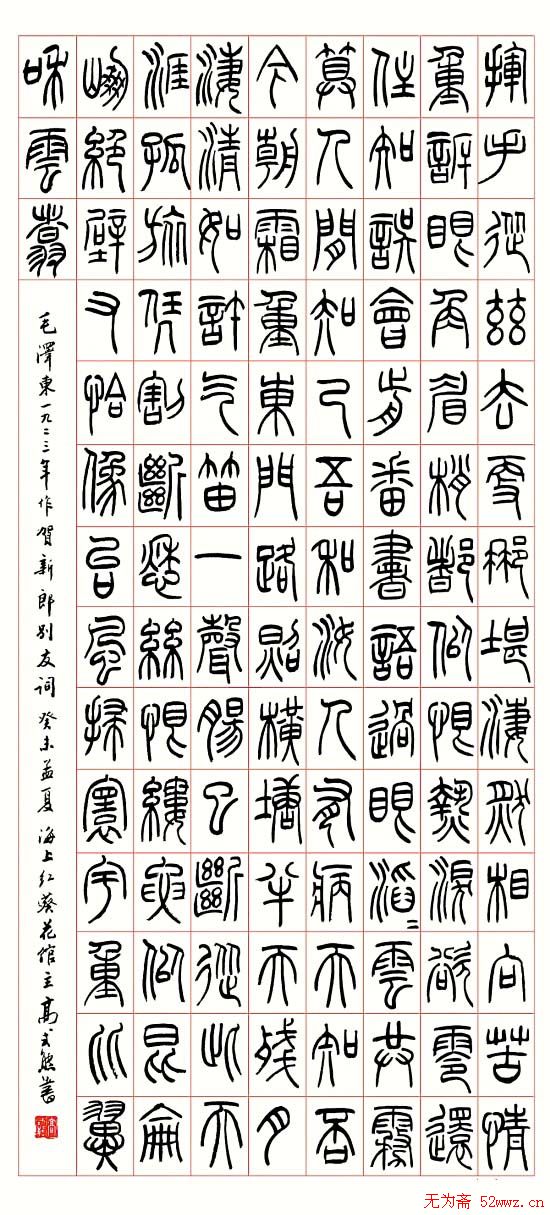 揮手從茲去更那堪淒然相向苦情
重訴眼角眉梢都似恨熱淚欲零還
住知誤會前番書語過眼滔〻雲共霧
算人間知己吾和汝人有病天知否
今朝霜重東門路照橫塘半天殘月
淒清如許气笛一聲腸已斷從此天
涯孤旅凭割斷愁絲恨縷要似昆侖
崩絕壁又恰像台風掃寰宇重比翼
和雲翥
毛澤東一九二三年作賀新郎別友詞 癸未孟夏 海上紅葵花館主高式熊書
无为斋 52wwz.cn